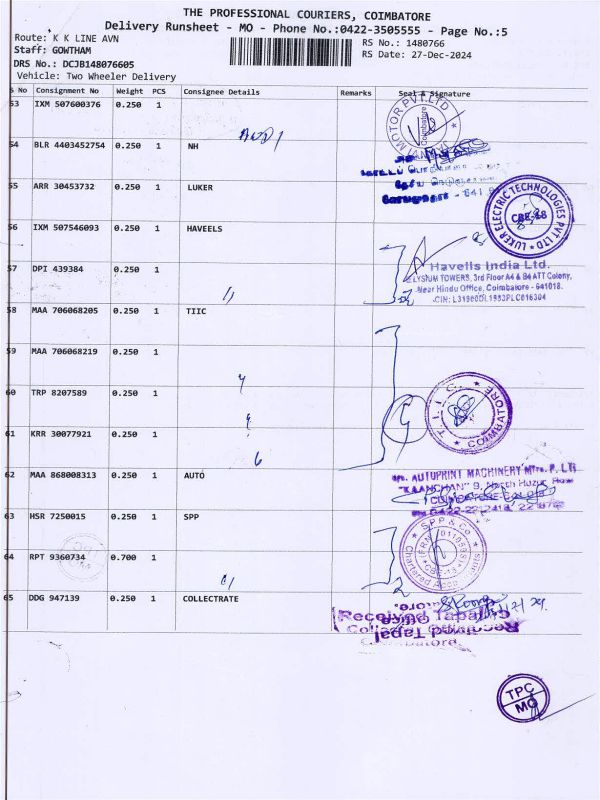 THE PROFESSIONAL COURIERS, COIMBATORE
Delivery Runsheet - MO - Phone No.:0422-3505555 - Page No.:5
Route: K K LINE AVN
RS No.: 1480766
Staff: GOWTHAM
RS Date: 27-Dec-2024
DRS No.: DCJB148076605
Vehicle: Two Wheeler Delivery
S No Consignment No Weight PCS Consignee Details Remarks Seal & Signature
53 IXM 507600376 0.250 1
54 BLR 4403452754 0.250 1 NH
55 ARR 30453732 0.250 1 LUKER
LUKER ELECTRIC TECHNOLOGIES PVT LTD
CBE-18
56 IXM 507546093 0.250 1 HAVEELS
Havells India Ltd.
ELYSIUM TOWERS, 3rd Floor A4 & B4 ATT Colony,
Near Hindu Office, Coimbatore - 641018.
57 DPI 439384 0.250 1
58 MAA 706068205 0.250 1 TIIC
59 MAA 706068219 0.250 1
60 TRP 8207589 0.250 1
T.I.I.C. COIMBATORE
61 KRR 30077921 0.250 1
62 MAA 868008313 0.250 1 AUTO
AUTOPRINT MACHINERY
63 HSR 7250015 0.250 1 SPP
SPP & Co.
64 RPT 9360734 0.700 1
65 DDG 947139 0.250 1 COLLECTRATE
Received Tapal
TPC
MO